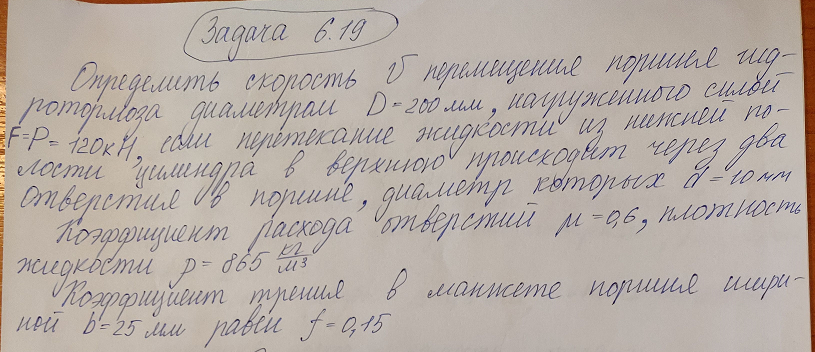 Задача 6.19
Определить скорость υ перемещения поршня гид-
ротормоза диаметром D=200мм, нагруженного силой
F=P=120кН, если перетекание жидкости из нижней по-
лости цилиндра в верхнюю происходит через два
отверстия в поршне, диаметр которых d=10мм
Коэффициент расхода отверстий μ=0,6, плотность
жидкости ρ=865 кг/м³
Коэффициент трения в манжете поршня шири-
ной b=25мм равен f=0,15